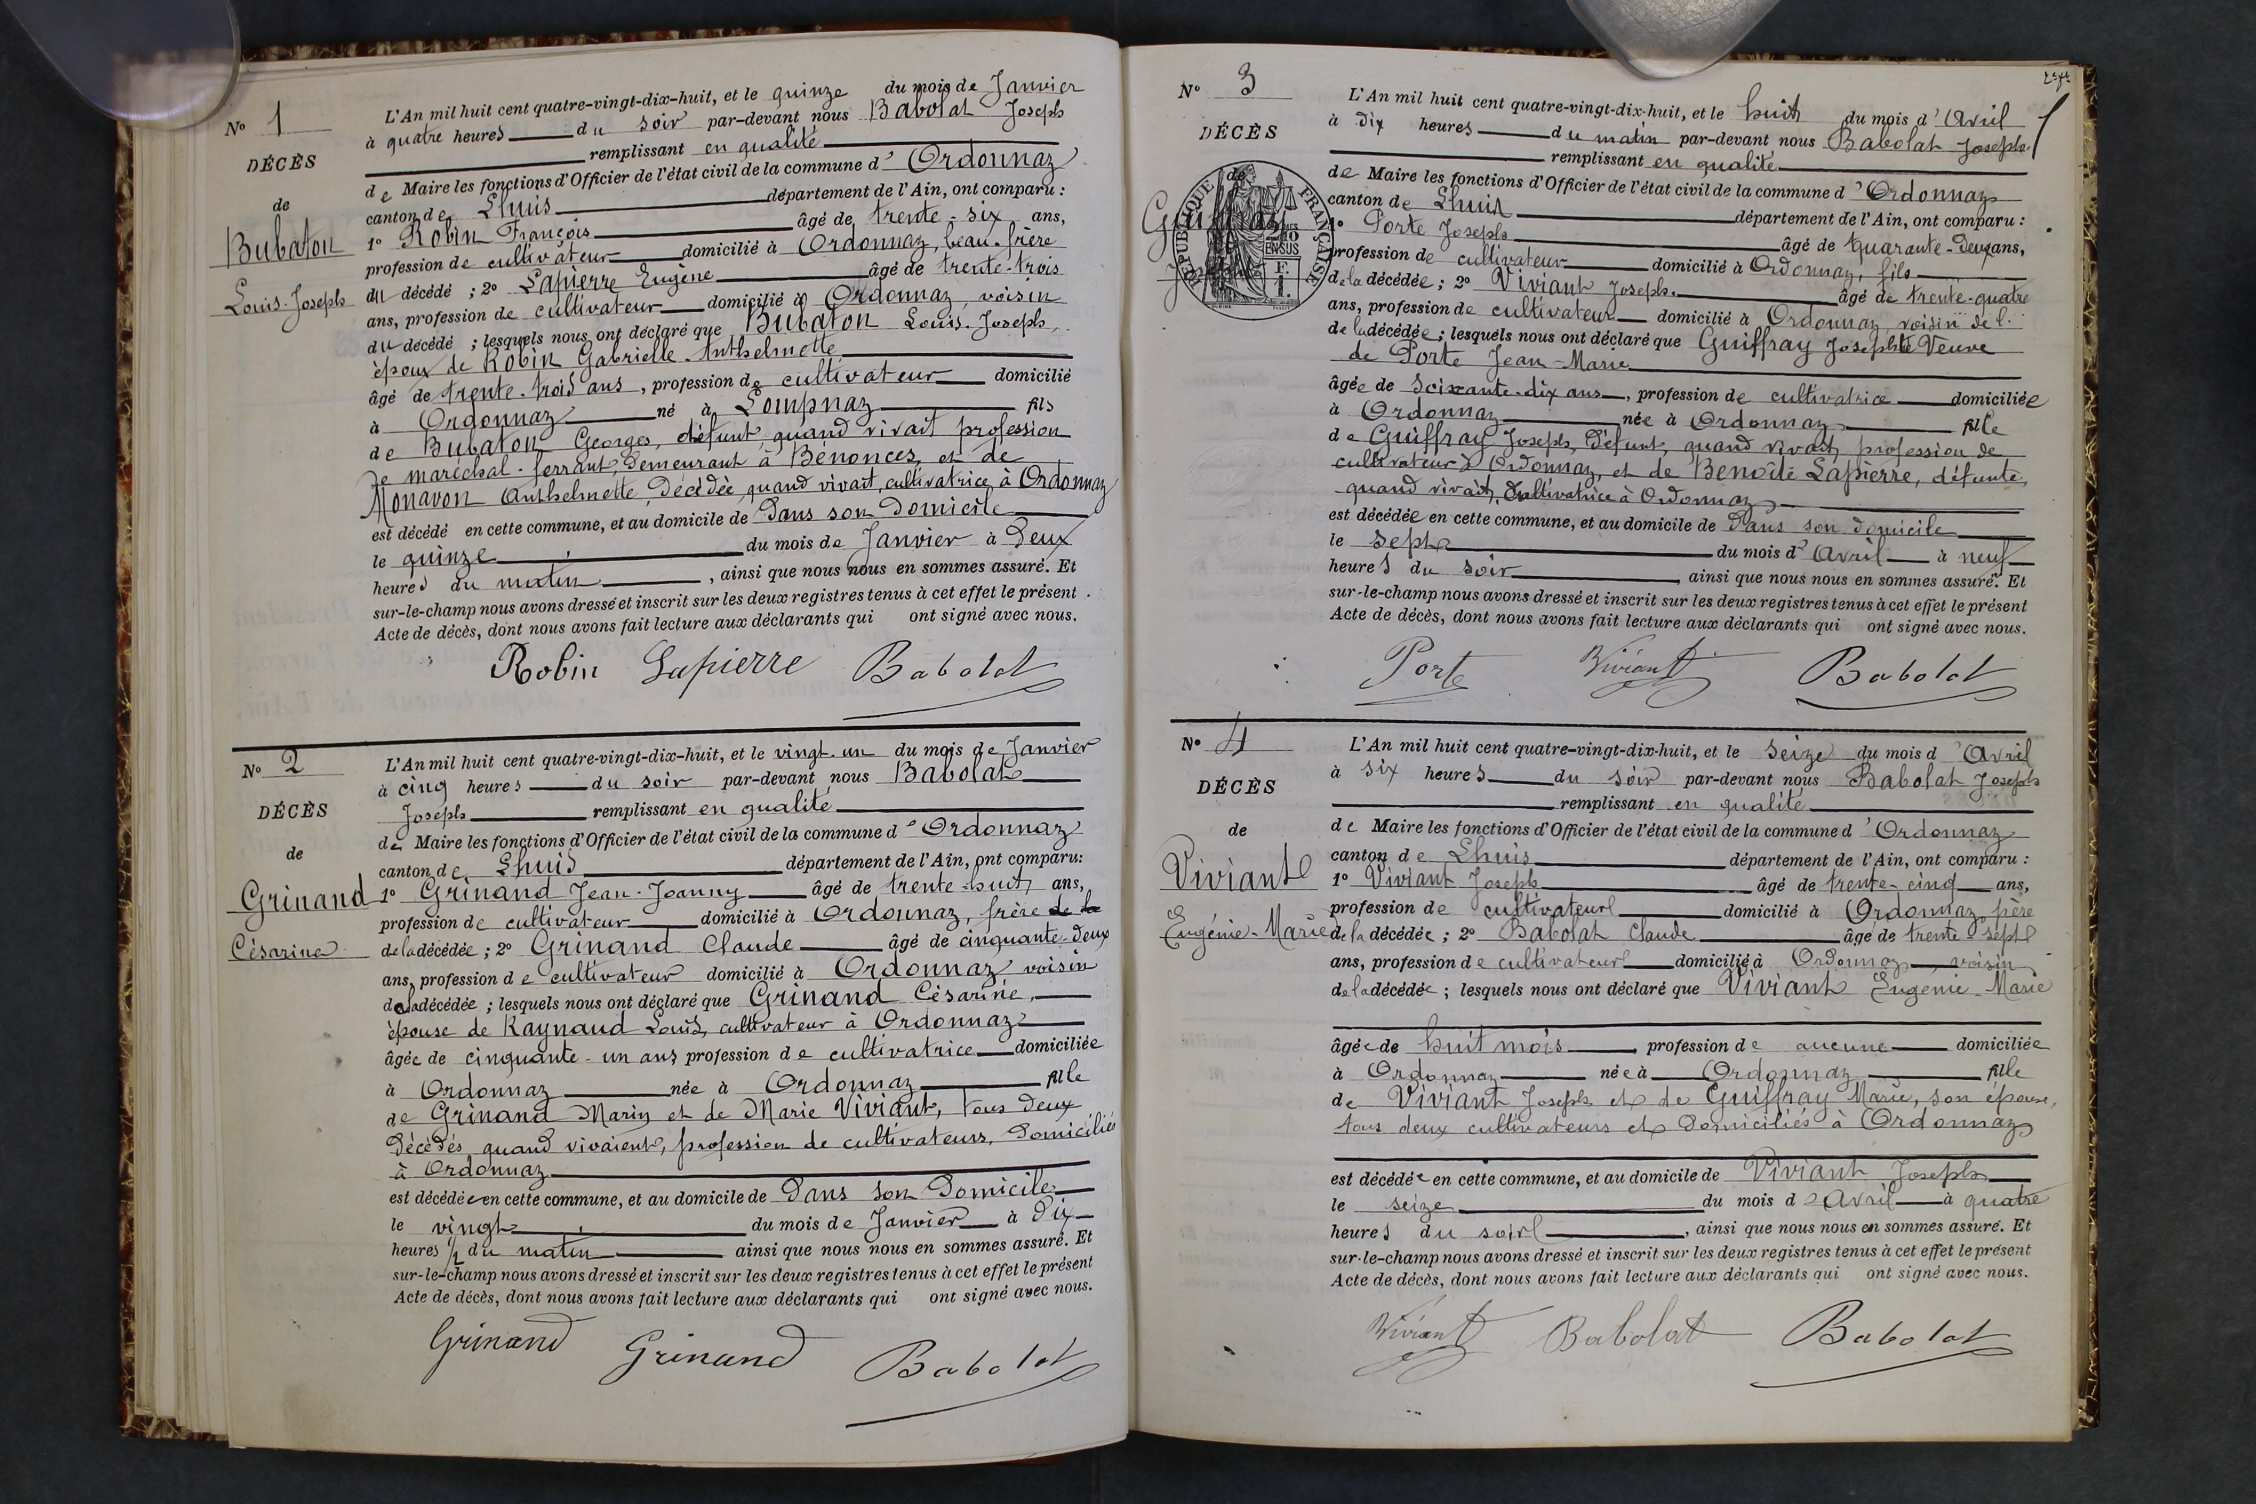 N° 1
DÉCÈS
de
Bubaton
Louis-Joseph
L'An mil huit cent quatre-vingt-dix-huit, et le quinze du mois de Janvier
à quatre heures du soir par-devant nous Babolat Joseph
remplissant en qualité
de Maire les fonctions d'Officier de l'état civil de la commune d'Ordonnaz
canton de Lhuis département de l'Ain, ont comparu :
1° Robin François âgé de trente-six ans,
profession de cultivateur domicilié à Ordonnaz, beau-frère
du décédé ; 2° Lapierre Eugène âgé de trente-trois
ans, profession de cultivateur domicilié à Ordonnaz, voisin
du décédé ; lesquels nous ont déclaré que Bubaton Louis-Joseph,
époux de Robin Gabrielle-Anthelmette
âgé de trente-trois ans, profession de cultivateur domicilié
à Ordonnaz né à Lompnaz fils
de Bubaton Georges, défunt, quand vivait profession
de maréchal-ferrant, demeurant à Bénonces, et de
Monavon Anthelmette, décédée, quand vivait, cultivatrice à Ordonnaz
est décédé en cette commune, et au domicile de dans son domicile
le quinze du mois de Janvier à deux
heures du matin, ainsi que nous nous en sommes assuré. Et
sur-le-champ nous avons dressé et inscrit sur les deux registres tenus à cet effet le présent
Acte de décès, dont nous avons fait lecture aux déclarants qui ont signé avec nous.
Robin Lapierre Babolat
N° 2
DÉCÈS
de
Grinand
Césarine
L'An mil huit cent quatre-vingt-dix-huit, et le vingt-un du mois de Janvier
à cinq heures du soir par-devant nous Babolat
Joseph remplissant en qualité
de Maire les fonctions d'Officier de l'état civil de la commune d'Ordonnaz
canton de Lhuis département de l'Ain, ont comparu:
1° Grinand Jean-Joanny âgé de trente-huit ans,
profession de cultivateur domicilié à Ordonnaz, frère de la
de la décédée ; 2° Grinand Claude âgé de cinquante-deux
ans, profession de cultivateur domicilié à Ordonnaz voisin
de la décédée ; lesquels nous ont déclaré que Grinand Césarine,
épouse de Raynaud Louis, cultivateur à Ordonnaz
âgée de cinquante-un ans profession de cultivatrice domiciliée
à Ordonnaz née à Ordonnaz fille
de Grinand Marin et de Marie Viviant, tous deux
décédés, quand vivaient, profession de cultivateurs, domiciliés
à Ordonnaz
est décédée en cette commune, et au domicile de dans son domicile
le vingt du mois de Janvier à dix
heures ½ du matin ainsi que nous nous en sommes assuré. Et
sur-le-champ nous avons dressé et inscrit sur les deux registres tenus à cet effet le présent
Acte de décès, dont nous avons fait lecture aux déclarants qui ont signé avec nous.
Grinand Grinand Babolat
N° 3
DÉCÈS
de
Guiffray
RÉPUBLIQUE FRANÇAISE
EN SUS
L'An mil huit cent quatre-vingt-dix-huit, et le huit du mois d'Avril
à dix heures du matin par-devant nous Babolat Joseph
remplissant en qualité
de Maire les fonctions d'Officier de l'état civil de la commune d'Ordonnaz
canton de Lhuis département de l'Ain, ont comparu :
1° Porte Joseph âgé de quarante-deux ans,
profession de cultivateur domicilié à Ordonnaz, fils
de la décédée ; 2° Viviant Joseph, âgé de trente-quatre
ans, profession de cultivateur domicilié à Ordonnaz, voisin de l.
de la décédée ; lesquels nous ont déclaré que Guiffray Josephte Veuve
de Porte Jean-Marie
âgée de soixante-dix ans, profession de cultivatrice domiciliée
à Ordonnaz née à Ordonnaz fille
de Guiffray Joseph, défunt, quand vivait, profession de
cultivateur à Ordonnaz, et de Benoîte Lapierre, défunte,
quand vivait, cultivatrice à Ordonnaz
est décédée en cette commune, et au domicile de dans son domicile
le sept du mois d'Avril à neuf
heures du soir, ainsi que nous nous en sommes assuré. Et
sur-le-champ nous avons dressé et inscrit sur les deux registres tenus à cet effet le présent
Acte de décès, dont nous avons fait lecture aux déclarants qui ont signé avec nous.
Porte Viviant Babolat
N° 4
DÉCÈS
de
Viviant
Eugénie-Marie
L'An mil huit cent quatre-vingt-dix-huit, et le seize du mois d'Avril
à six heures du soir par-devant nous Babolat Joseph
remplissant en qualité
de Maire les fonctions d'Officier de l'état civil de la commune d'Ordonnaz
canton de Lhuis département de l'Ain, ont comparu :
1° Viviant Joseph âgé de trente-cinq ans,
profession de cultivateur domicilié à Ordonnaz père
de la décédée ; 2° Babolat Claude âgé de trente-sept
ans, profession de cultivateur domicilié à Ordonnaz, voisin
de la décédée ; lesquels nous ont déclaré que Viviant Eugénie-Marie
âgée de huit mois, profession de aucune domiciliée
à Ordonnaz née à Ordonnaz fille
de Viviant Joseph et de Guiffray Marie, son épouse,
tous deux cultivateurs et domiciliés à Ordonnaz
est décédée en cette commune, et au domicile de Viviant Joseph
le seize du mois d'Avril à quatre
heures du soir, ainsi que nous nous en sommes assuré. Et
sur-le-champ nous avons dressé et inscrit sur les deux registres tenus à cet effet le présent
Acte de décès, dont nous avons fait lecture aux déclarants qui ont signé avec nous.
Viviant Babolat Babolat